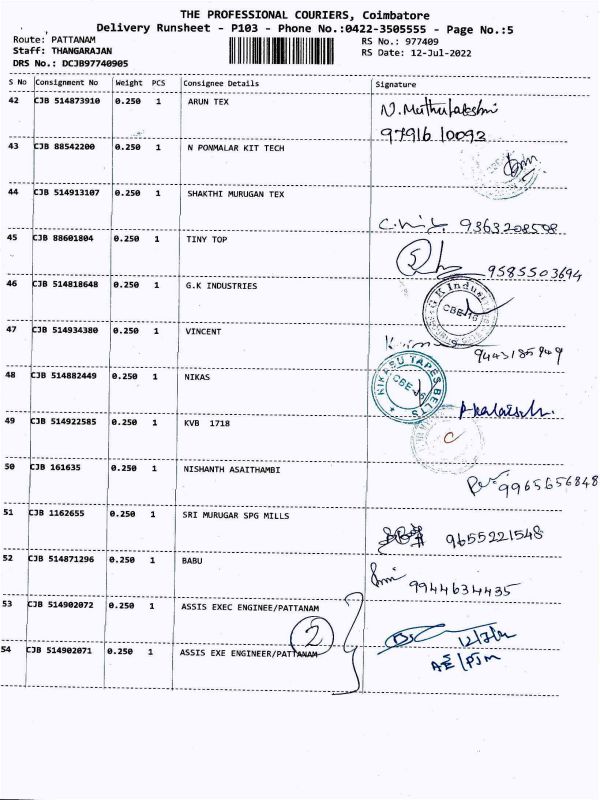 THE PROFESSIONAL COURIERS, Coimbatore
Delivery Runsheet - P103 - Phone No.:0422-3505555 - Page No.:5
Route: PATTANAM
Staff: THANGARAJAN
DRS No.: DCJB97740905
RS No.: 977409
RS Date: 12-Jul-2022
S No Consignment No Weight PCS Consignee Details Signature
42 CJB 514873910 0.250 1 ARUN TEX N. Muthulakshmi
97916 10092
43 CJB 88542200 0.250 1 N PONMALAR KIT TECH
44 CJB 514913107 0.250 1 SHAKTHI MURUGAN TEX
9363208508
45 CJB 88601804 0.250 1 TINY TOP
9585503694
46 CJB 514818648 0.250 1 G.K INDUSTRIES
G K Indus
CBE-16
47 CJB 514934380 0.250 1 VINCENT
9443185949
48 CJB 514882449 0.250 1 NIKAS
NIKASU TAPES BELTS
CBE-16
49 CJB 514922585 0.250 1 KVB 1718
50 CJB 161635 0.250 1 NISHANTH ASAITHAMBI
9965656848
51 CJB 1162655 0.250 1 SRI MURUGAR SPG MILLS
9655221548
52 CJB 514871296 0.250 1 BABU
9944634435
53 CJB 514902072 0.250 1 ASSIS EXEC ENGINEE/PATTANAM
2
54 CJB 514902071 0.250 1 ASSIS EXE ENGINEER/PATTANAM
12/7/22
AE/PJM